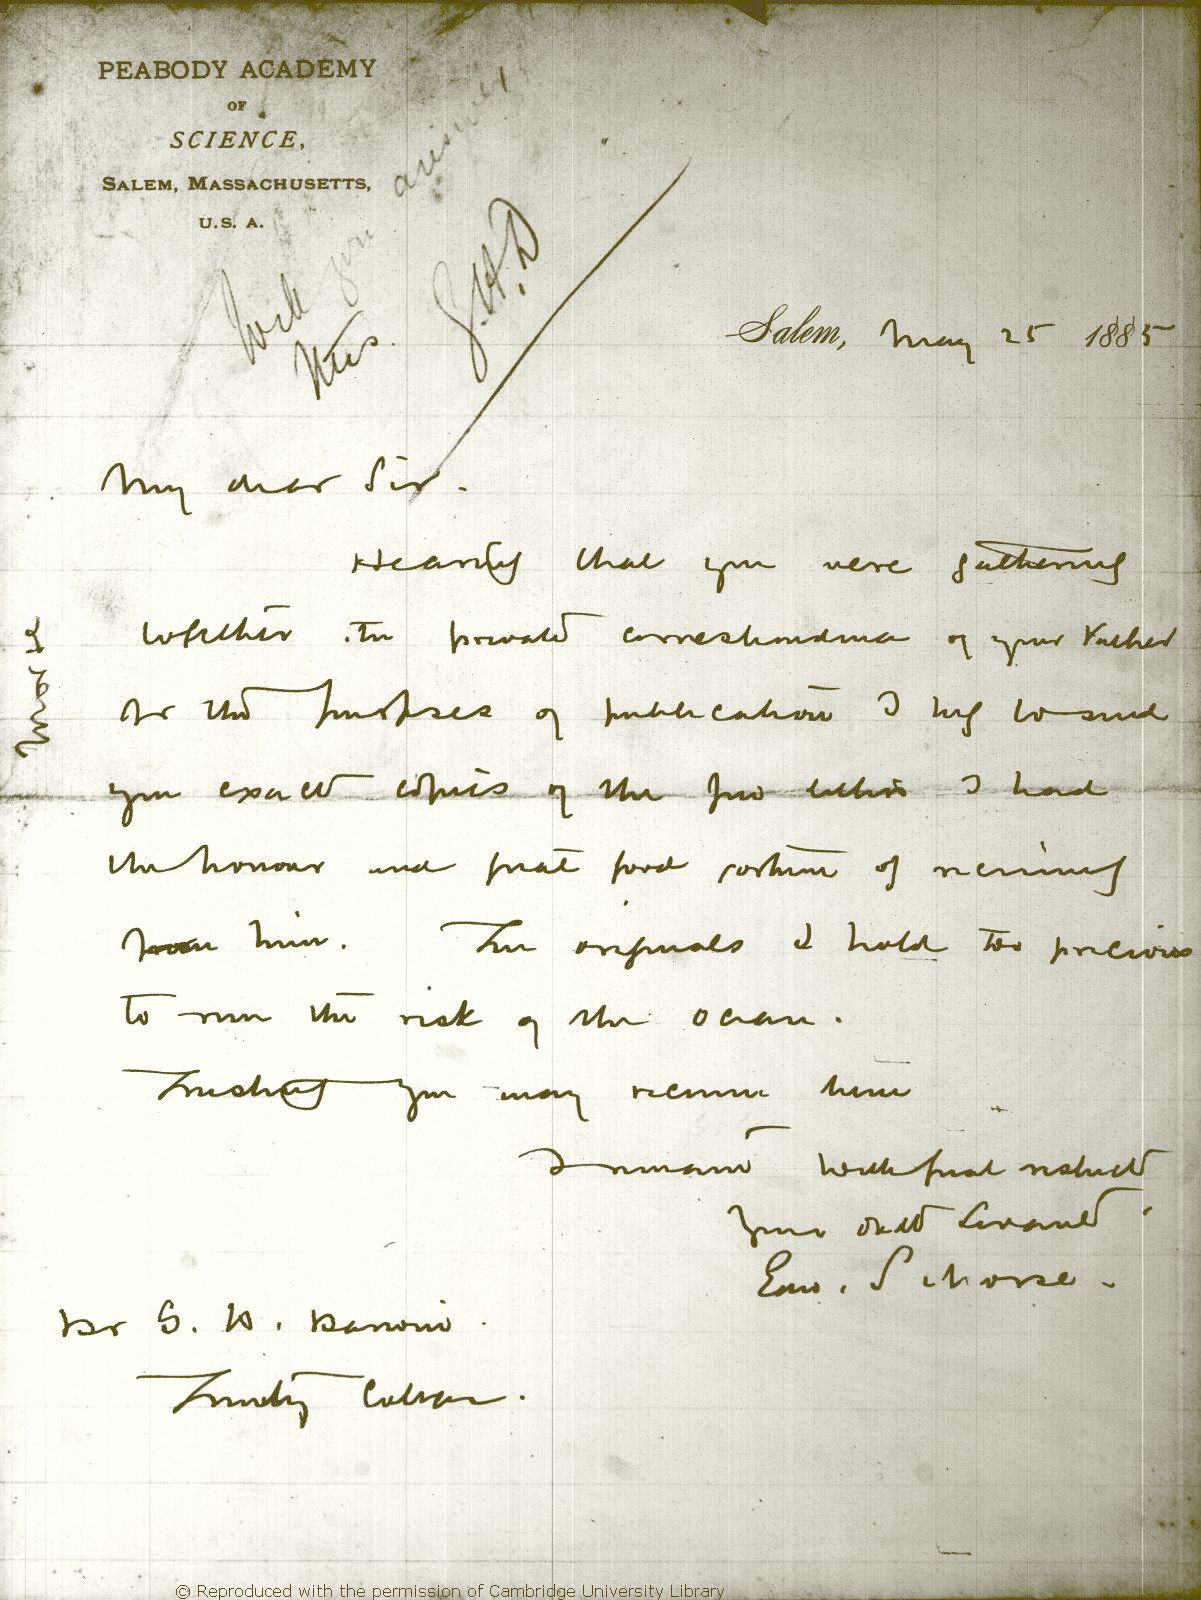 PEABODY ACADEMY
OF
SCIENCE,
SALEM, MASSACHUSETTS,
U. S. A.
Will you answer
this.
G.H.D
Salem, May 25 1885
My dear Sir.
Hearing that you were gathering
together the private correspondence of your Father
for the purposes of publication I beg to send
you exact copies of the few letters I had
the honour and great good fortune of receiving
from him. The originals I hold too precious
to run the risk of the ocean.
Trusting you may receive them
I remain with great respect
Your obdt Servant
Edw. S Morse.
Dr G. H. Darwin.
Trinity College.
Morse
© Reproduced with the permission of Cambridge University Library